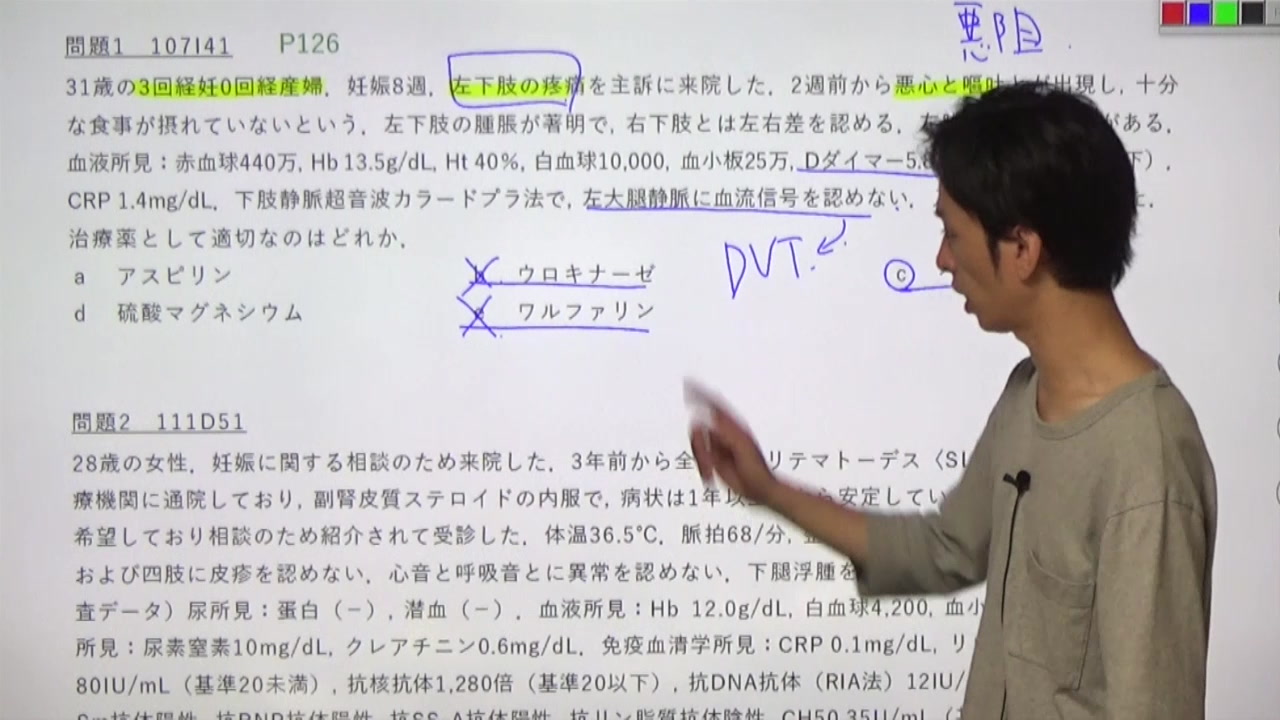 悪阻
問題1 107I41 P126
31歳の3回経妊0回経産婦．妊娠8週．左下肢の疼痛を主訴に来院した．2週前から悪心と嘔吐とが出現し, 十分
な食事が摂れていないという．左下肢の腫脹が著明で, 右下肢とは左右差を認める．がある．
血液所見：赤血球440万, Hb 13.5g/dL, Ht 40%, 白血球10,000, 血小板25万, Dダイマー5.下）．
CRP 1.4mg/dL．下肢静脈超音波カラードプラ法で, 左大腿静脈に血流信号を認めない．
治療薬として適切なのはどれか．
DVT.
a アスピリン b ウロキナーゼ c
d 硫酸マグネシウム e ワルファリン
問題2 111D51
28歳の女性．妊娠に関する相談のため来院した．3年前から全リテマトーデス〈SL
療機関に通院しており, 副腎皮質ステロイドの内服で, 病状は1年以から安定してい
希望しており相談のため紹介されて受診した．体温36.5℃．脈拍68/分,
および四肢に皮疹を認めない．心音と呼吸音とに異常を認めない．下腿浮腫を
査データ）尿所見：蛋白（−）, 潜血（−）．血液所見：Hb 12.0g/dL, 白血球4,200, 血小
所見：尿素窒素10mg/dL, クレアチニン0.6mg/dL．免疫血清学所見：CRP 0.1mg/dL, リ
80IU/mL（基準20未満）, 抗核抗体1,280倍（基準20以下）, 抗DNA抗体（RIA法）12IU/
Sm抗体陽性, 抗RNP抗体陽性, 抗SS-A抗体陽性, 抗リン脂質抗体陰性, CH50 35U/mL